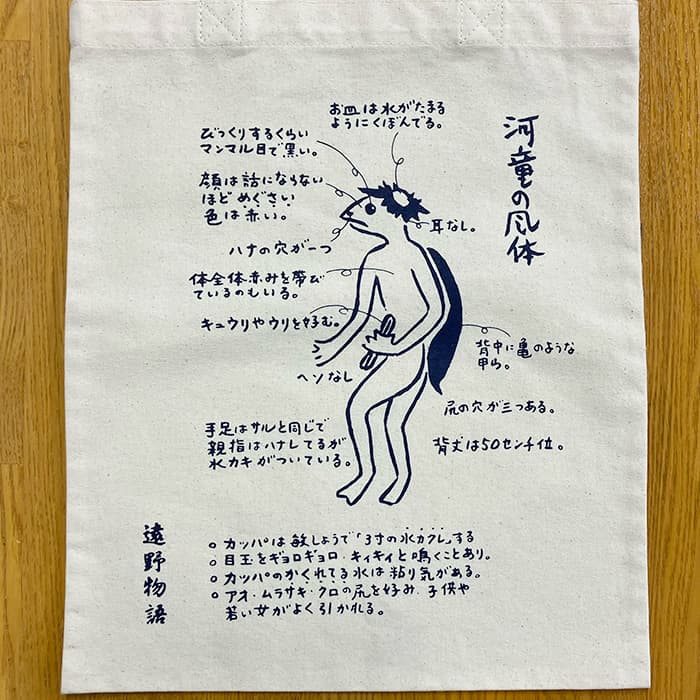 河童の風体
お皿は水がたまる
ようにくぼんでる。
びっくりするくらい
マンマル目で黒い。
顔は話にならない
ほどめぐさい
色は赤い。
耳なし。
ハナの穴が一つ
体全体赤みを帯び
ているのもいる。
キュウリやウリを好む。
背中に亀のような
甲ら。
ヘソなし
尻の穴が三つある。
手足はサルと同じで
親指はハナレてるが
水カキがついている。
背丈は50センチ位。
遠野物語
○ カッパは敏しょうで「3寸の水カクレ」する
○ 目玉をギョロギョロ・キィキィと鳴くことあり。
○ カッパのかくれてる水は粘り気がある。
○ アオ・ムラサキ・クロの尻を好み 子供や
若い女がよく引かれる。